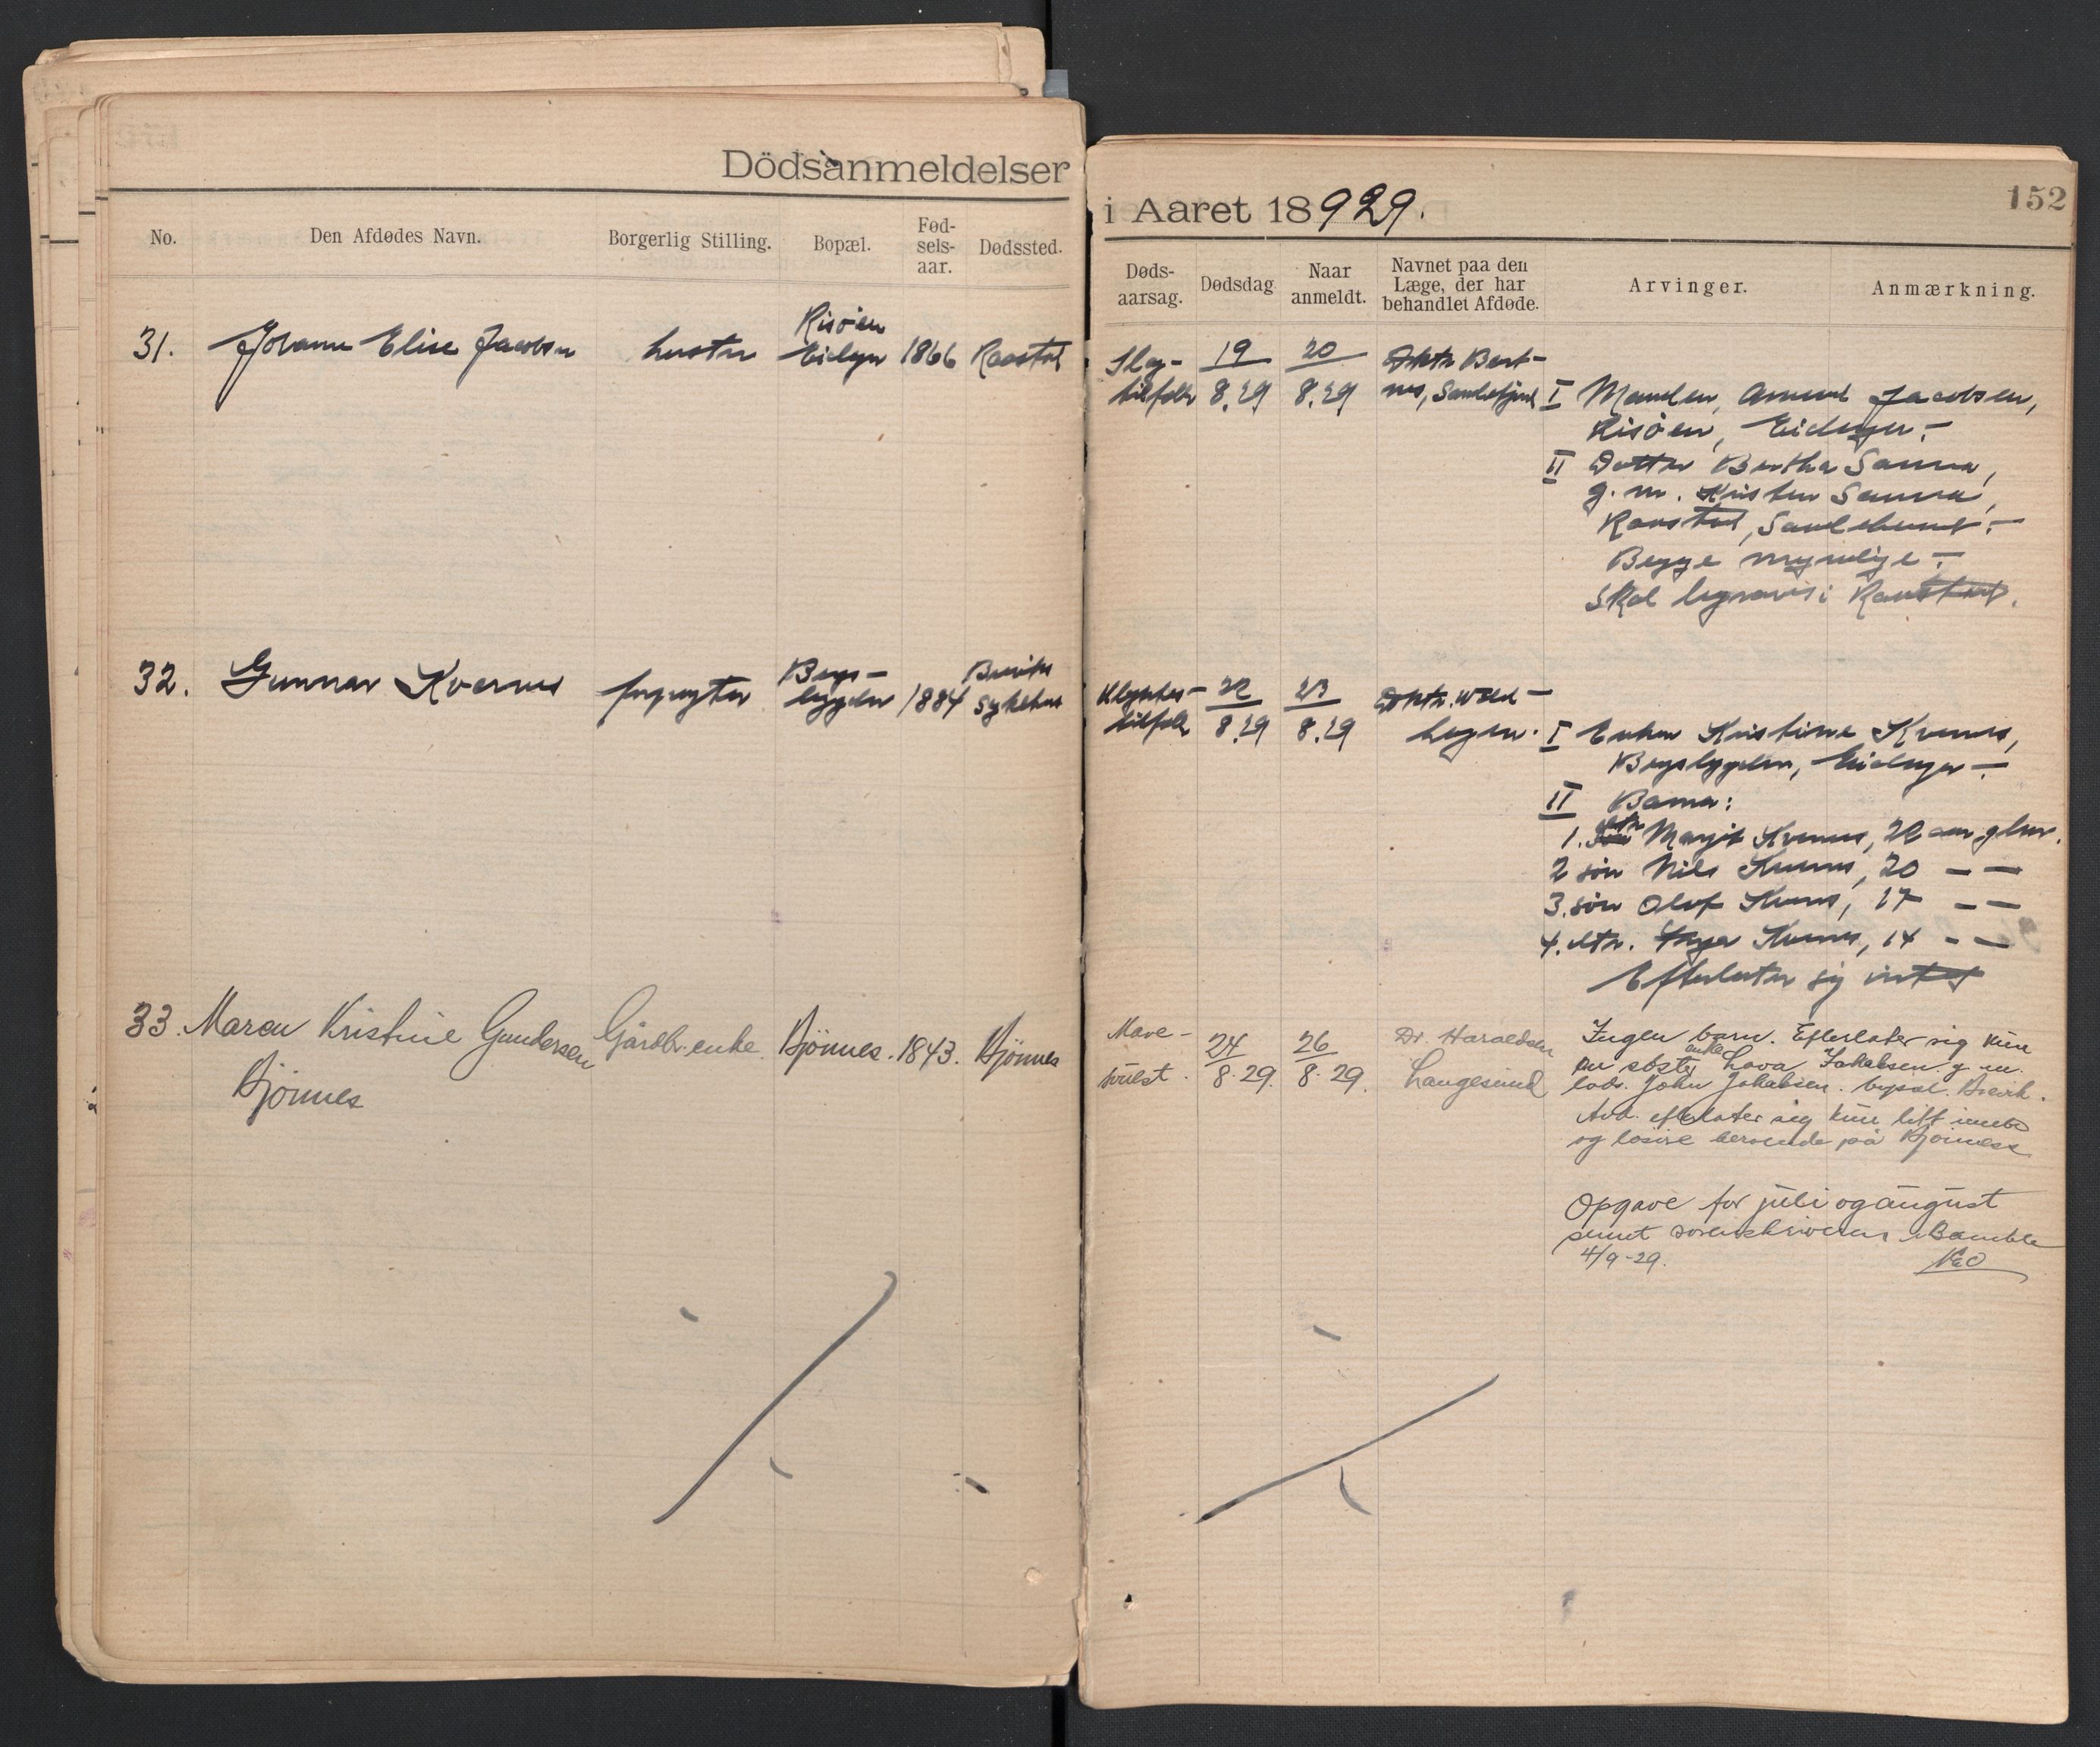 Dödsanmeldelser
i Aaret 18929.
152
No.
Den Afdødes Navn.
Borgerlig Stilling.
Bopæl.
Fød-
sels-
aar.
Dødssted.
Døds-
aarsag.
Dødsdag
Naar
anmeldt.
Navnet paa den
Læge, der har
behandlet Afdøde.
Arvinger.
Anmærkning.
31.
Johanne Elise Jacobsen
hustru
Risöen
Eidanger
1866
Raastad
Slag-
tilfelle
19
8.29
20
8.29
Doktor
Sandefjord
I Manden, Jacobsen,
Risöen, Eidanger.-
II Datter Bertha Sanna,
g. m. Kristen Sanna,
Raastad, Sandeherred.-
Begge myndige.-
Skal begraves i Raastad.
32.
Gunnar Kvernes
forpagter
Bergs-
bygden
1884
Breviks
Sykehus
tilfelle
22
8.29
23
8.29
Doktor
I Enken Kristine Kvernes,
Bergsbygden, Eidanger.-
II Barna:
1. dtr Margit Kvernes, 22 aar gl.
2 sön Nils Kvernes, 20 - -
3. sön Olaf Kvernes, 17 - -
4. dtr. Kvernes, 14 - -
Efterlater sig intet
33.
Maren Kristine Gundersen
Bjönnes
Gårdbr.enke.
Bjönnes.
1843.
Bjönnes
Mave-
svulst.
24
8.29.
26
8.29.
Dr. Haraldsen
Langesund
Ingen barn. Efterlater sig kun
en söster enke Lova Jakobsen g. m.
lods. John Jakobsen. bopæl. Brevik.
Avd. efterlater sig kun litt innbo
og lösöre beroende på Bjönnes
Opgave for juli og august
sendt sorenskriveren i Bamble
4/9-29.